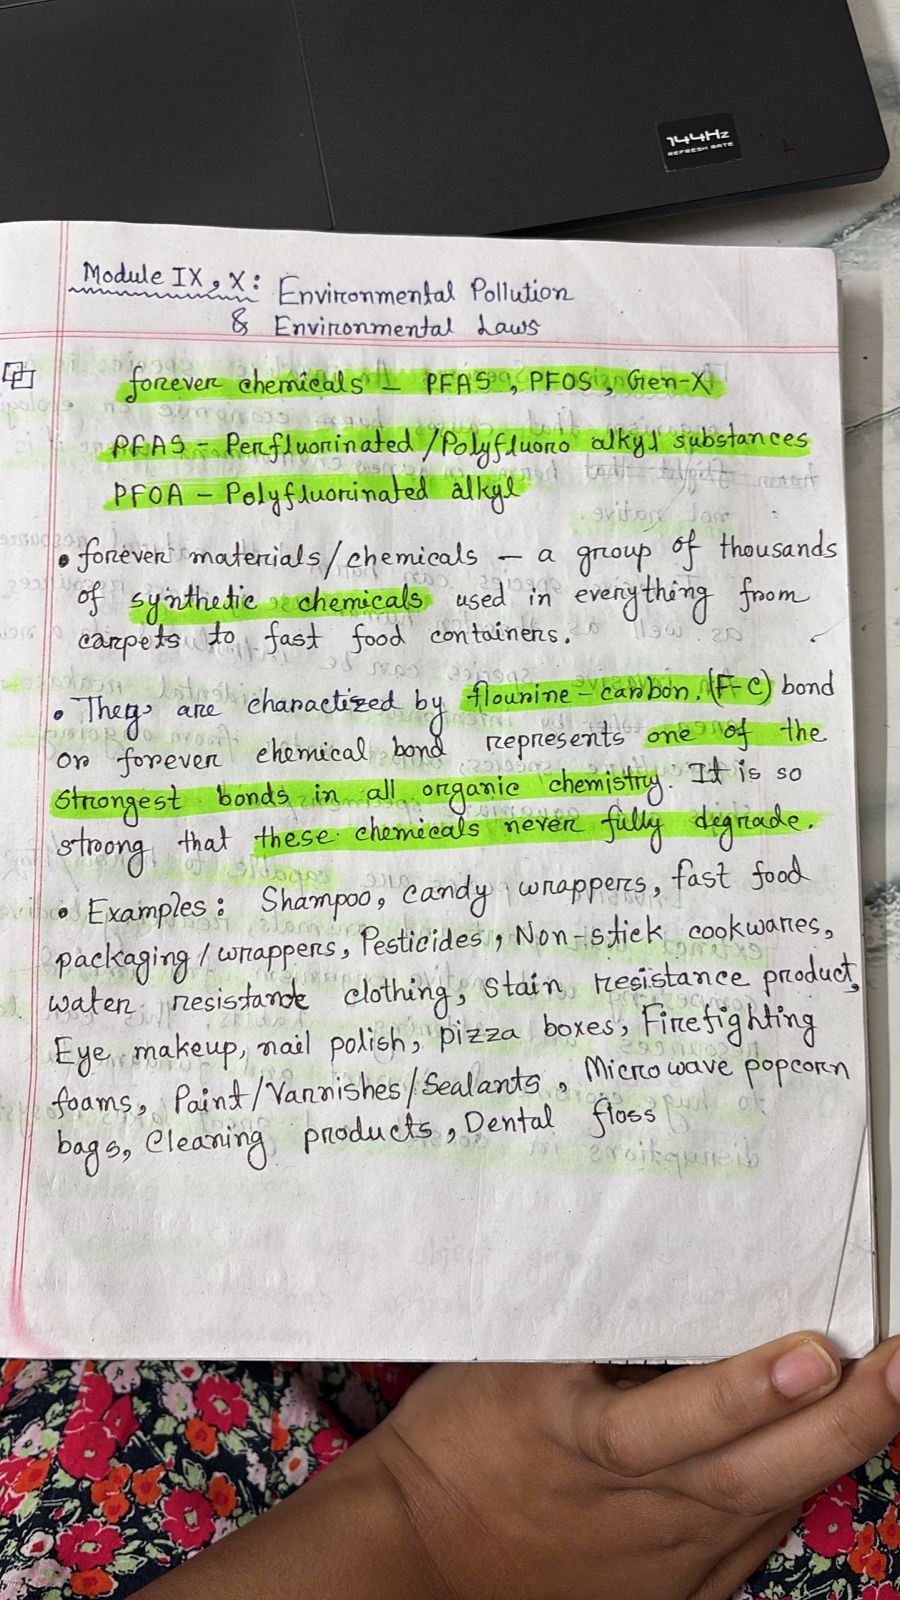 144Hz
REFRESH RATE
Module IX, X: Environmental Pollution
& Environmental Laws
forever chemicals - PFAS, PFOS, Gen-X
PFAS - Perfluorinated/Polyfluoro alkyl substances
PFOA - Polyfluorinated alkyl
• forever materials/chemicals - a group of thousands
of synthetic chemicals used in everything from
carpets to fast food containers.
• They are charactized by flourine-carbon (F-C) bond
or forever chemical bond represents one of the
strongest bonds in all organic chemistry. It is so
stroong that these chemicals never fully degrade.
• Examples: Shampoo, candy wrappers, fast food
packaging/wrappers, Pesticides, Non-stick cookwares,
water resistance clothing, Stain resistance product,
Eye makeup, nail polish, pizza boxes, Firefighting
foams, Paint/Varnishes/Sealants, Microwave popcorn
bags, Cleaning products, Dental floss